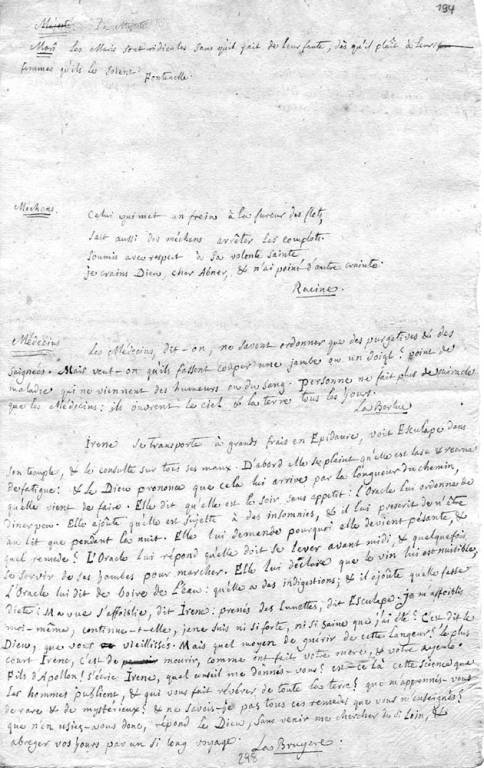 194
Mari Les Maris sont ridicules sans qu'il fait de leur faute, dès qu'il plaît à leurs
femmes qu'ils le soient.
Fontenelle.
Méchans. Celui qui met un frein à la fureur des flots,
Sait aussi des méchans arrêter les complots.
Soumis avec respect à sa volonté sainte
je crains Dieu, cher Abner, & n'ai point d'autre crainte.
Racine.
Médécins Les Médecins, dit-on, ne savent ordonner que des purgatives & des
saignées. Mais veut-on qu'ils fassent couper une jambe ou un doigt? point de
maladie qui ne viennent des humeurs ou du sang. personne ne fait plus de miracle
que les Médecins: ils ouvrent le ciel & la terre tous les jours.
Irene se transporte à grands frais en Epidaure, voit Esculape dans
son temple, & le consulte sur tous ses maux. D'abord elle se plaint qu'elle est lasse & recrue
de fatigue: & le Dieu prononce que cela lui arrive par la longueur du chemin,
qu'elle vient de faire. Elle dit qu'elle est le soir sans appetit: l'Oracle lui ordonne de
diner peu. Elle ajoûte qu'elle est sujette à des insomnies, & il lui prescrit de n'être
au lit que pendant la nuit. Elle lui demande pourquoi elle devient pesante, &
quel remede? L'Oracle lui répond qu'elle doit se lever avant midi, & quelquefois
se servir de ses jambes pour marcher. Elle lui déclare que le vin lui est nuisible,
l'Oracle lui dit de boire de l'eau: qu'elle a des indigestions; & il ajoûte qu'elle fasse
diete: Ma vue s'affoiblie, dit Irene: prenés des Lunettes, dit Esculape. Je m'affoiblis
moi-même, continue-t-elle, je ne suis ni si forte, ni si saine que j'ai été? C'est dit le
Dieu, que vous vieillissés. Mais quel moyen de guérir de cette langueur? le plus
court Irene, c'est de mourir, comme ont fait votre mere, & votre ayeule.
Fils d'Apollon! s'écrie Irene, quel conseil me donnés-vous! est-ce là cette Science que
les hommes publient, & qui vous fait révérer de toute la terre? que m'apprenés-vous
de rare & de mystérieux? & ne savois-je pas tous ces remèdes que vous m'enseignés?
que n'en usiez-vous donc, répond le Dieu, sans venir me chercher de si loin, &
abréger vos jours par un si long voyage. La Bruyere.